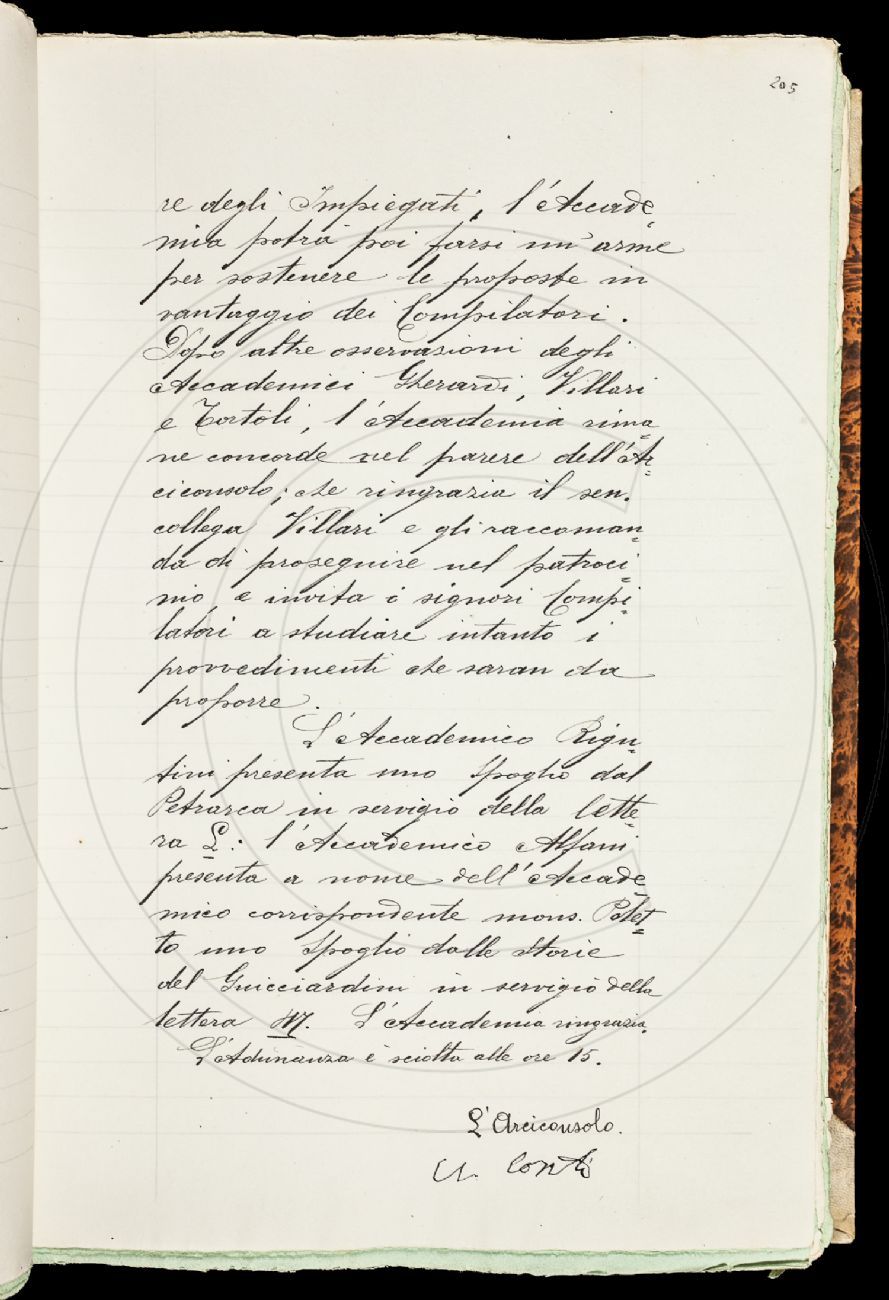 205
re degli Impiegati, l'Accade=
mia potrà poi farsi un' arme
per sostenere le proposte in
vantaggio dei Compilatori.
Dopo altre osservazioni degli
Accademici Gherardi, Villari
e Tortoli, l'Accademia rima=
ne concorde nel parere dell'Ar=
ciconsolo; che ringrazia il sen.
collega Villari e gli raccoman=
da di proseguire nel patroci=
nio, e invita i signori Compi=
latori a studiare intanto i
provvedimenti che saran da
proporre.
L'Accademico Rigu=
tini presenta uno Spoglio dal
Petrarca in servigio della lette=
ra L: l'Accademico Alfani
presenta a nome dell'Accade=
mico corrispondente mons. Polet=
to uno Spoglio dalle Storie
del Guicciardini in servigio della
lettera M. L'Accademia ringrazia.
L'Adunanza è sciolta alle ore 15.
L'Arciconsolo.
A. Conti